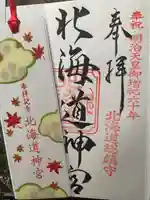 奉祝 明治天皇御増祀六十年
奉拝
北海道神宮
北海道総鎮守
北海道神宮